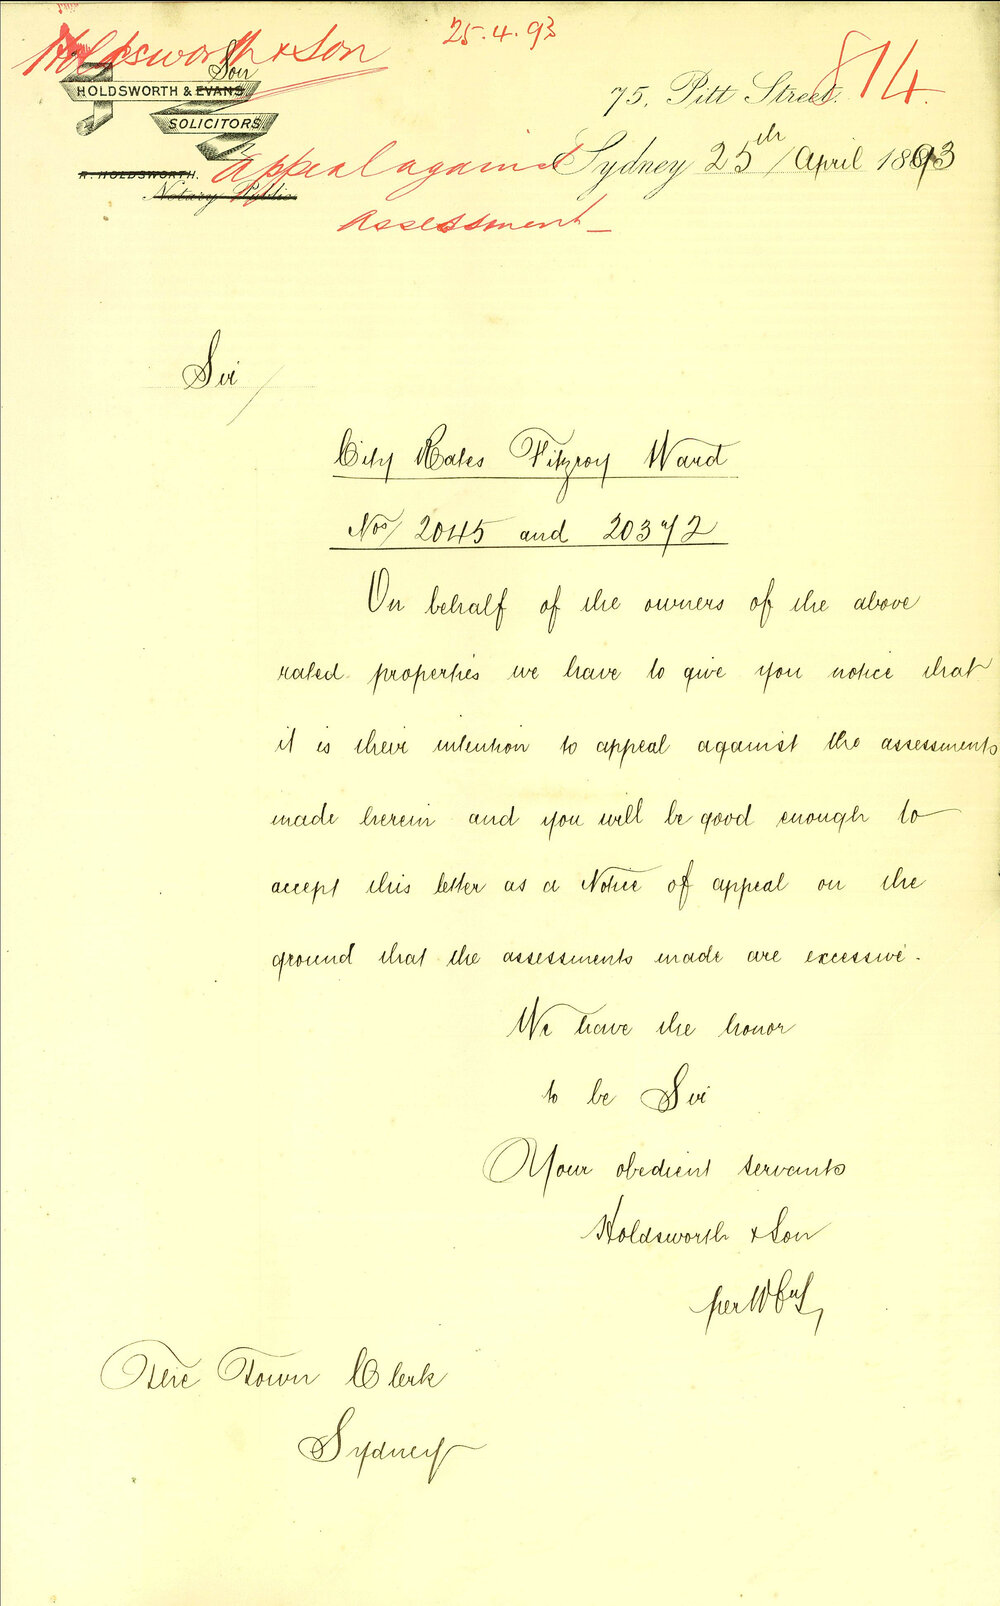 Holdsworth & Son
25.4.93
814
Son
HOLDSWORTH & EVANS
SOLICITORS
R. HOLDSWORTH.
Notary Public
75, Pitt Street.
Sydney 25th April 1893
Appeal against
Assessment
Sir
City Rates Fitzroy Ward
Nos/ 2045 and 2037/2
On behalf of the owners of the above
rated properties we have to give you notice that
it is their intention to appeal against the assessments
made herein and you will be good enough to
accept this letter as a Notice of appeal on the
ground that the assessments made are excessive.
We have the honor
to be Sir
Your obedient servants
Holdsworth & Son
per
The Town Clerk
Sydney